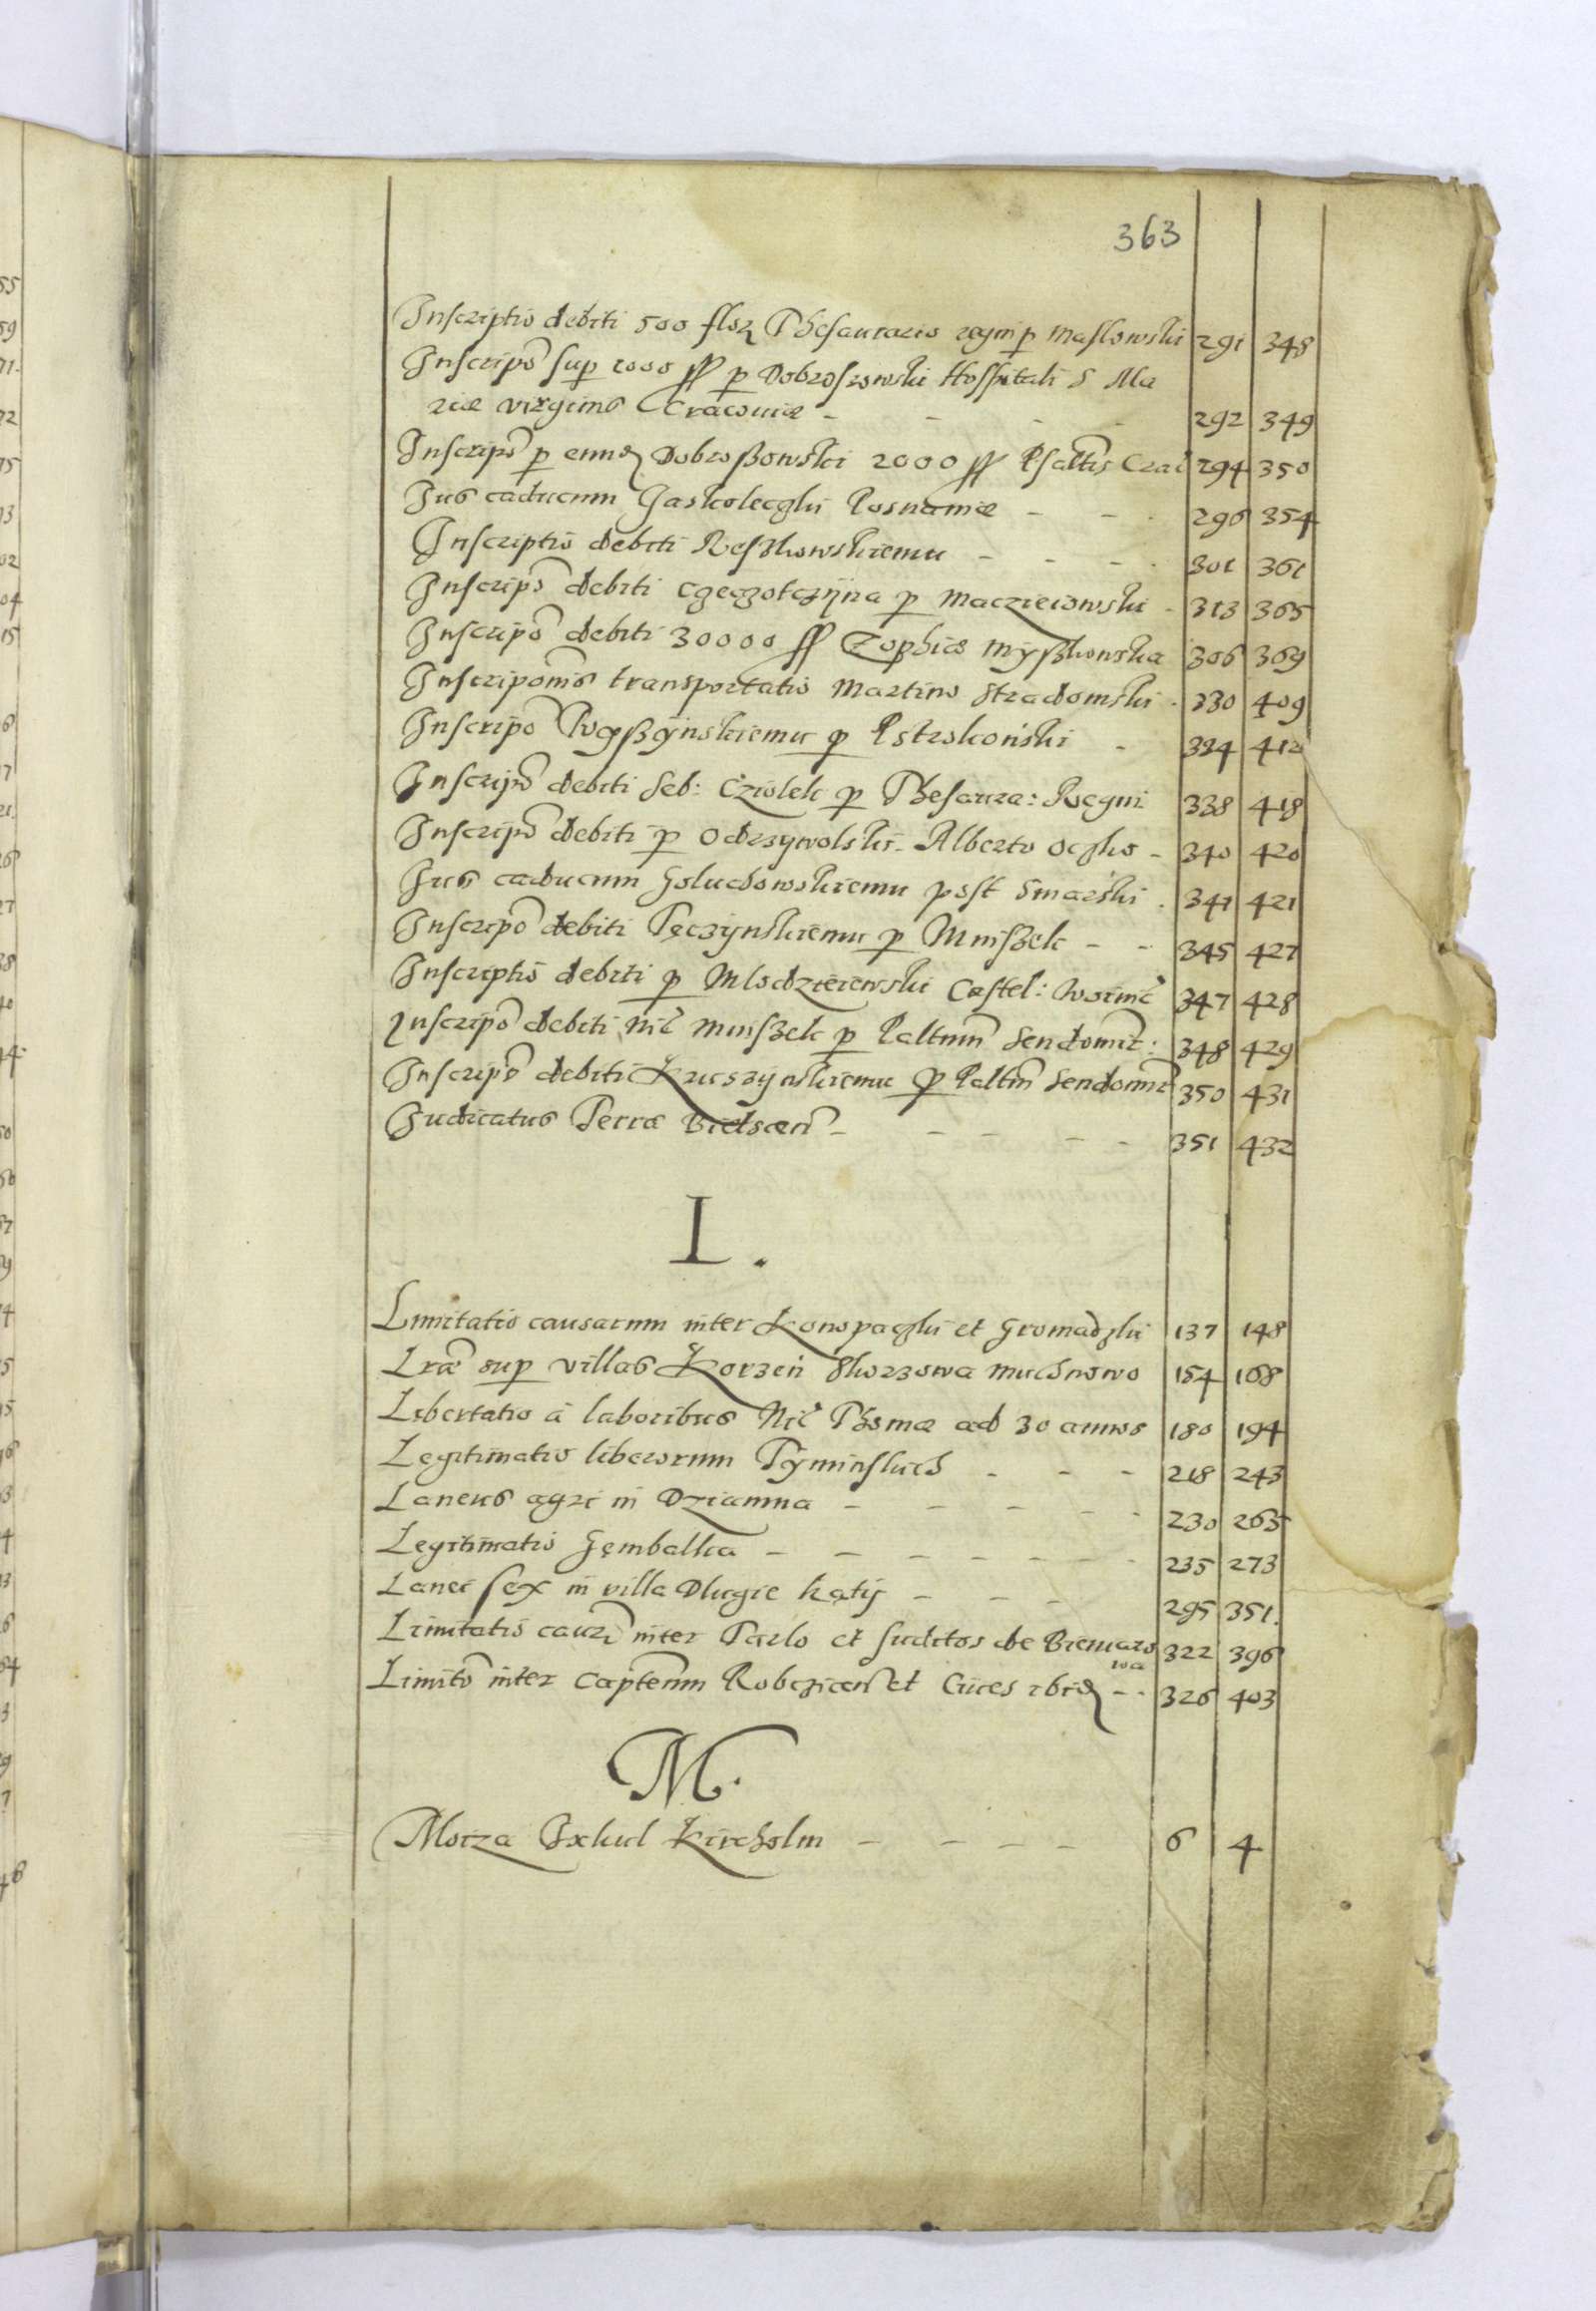 363
Inscriptio debiti 500 flor Thesaurario regni p Maslowski 291 348
Inscripo sup 1000 ff p Dobrosowski Hospitali S Ma
riæ virginis Cracoviæ - - - 292 349
Inscripo p eund Dobroßowski 2000 ff Psaltis Crac 294 350
Jus caducum Jaskolecglii Posnaniæ - - 296 354
Inscriptio debiti Reszkowskiemu - - - 301 361
Inscripo debiti p Macziejowski - 313 365
Inscripo debiti 30000 ff Zophiæ Myßkowska 306 369
Inscriponis transportatio Martino Stradomski - 330 409
Inscripo p Pstrokoński - 334 412
Inscripo debiti Seb: Cziolek p Thesaura: Regni 338 418
Inscripo debiti p Odrzywolski Alberto - 340 420
Jus caducum Goluchowskiemu post Smarski . 341 421
Inscripo debiti Tęczynskiemu p Mniszek - - 345 427
Inscriptio debiti p Mlodzieiewski Castel: 347 428
Inscripo debiti Nic Mniszek p Paltinum Sendomir: 348 429
Inscripo debiti Kruszynskiemu p Paltin Sendomir 350 431
Judicatus Terræ Bielscen - - - - - 351 432
L.
Limitatio causarum inter Konopaczki et Gromadzki 137 148
Lræ sup villas Korzeń Skorzowa Muchnowo 154 168
Libertatio à laboribus Nic Thomæ ad 30 annos 180 194
Legitimatio liberorum Tyminskich - - - 218 243
Laneus agri in Dzianna - - - - - 230 265
Legitimatio Gęmbalka - - - - - - - 235 273
Lanei sex in villa Dlugie kąty - - - 295 351.
Limitatio causæ inter Tarlo et subditos de Bieniaro
wa 322 396
Limito inter Capteum Robczicen et Cives ibid - - 326 403
M.
Moiza Ixkul Kircholm - - - - 6 4